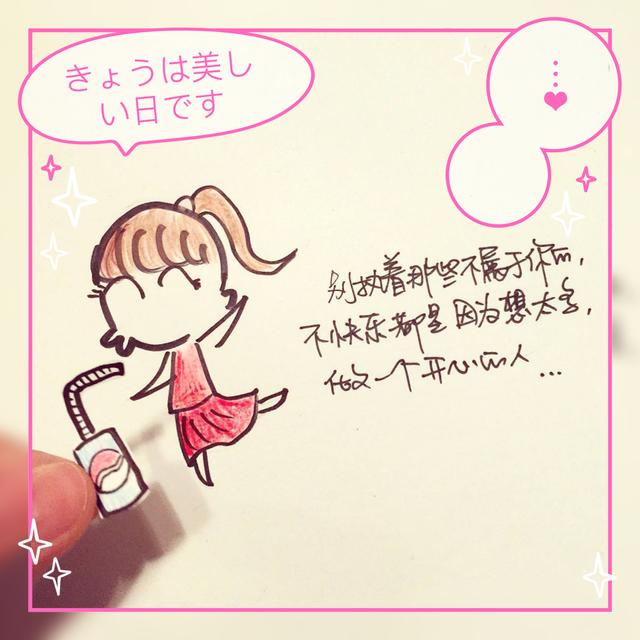 きょうは美し
い日です
别执着那些不属于你的，
不快乐都是因为想太多，
做一个开心的人...